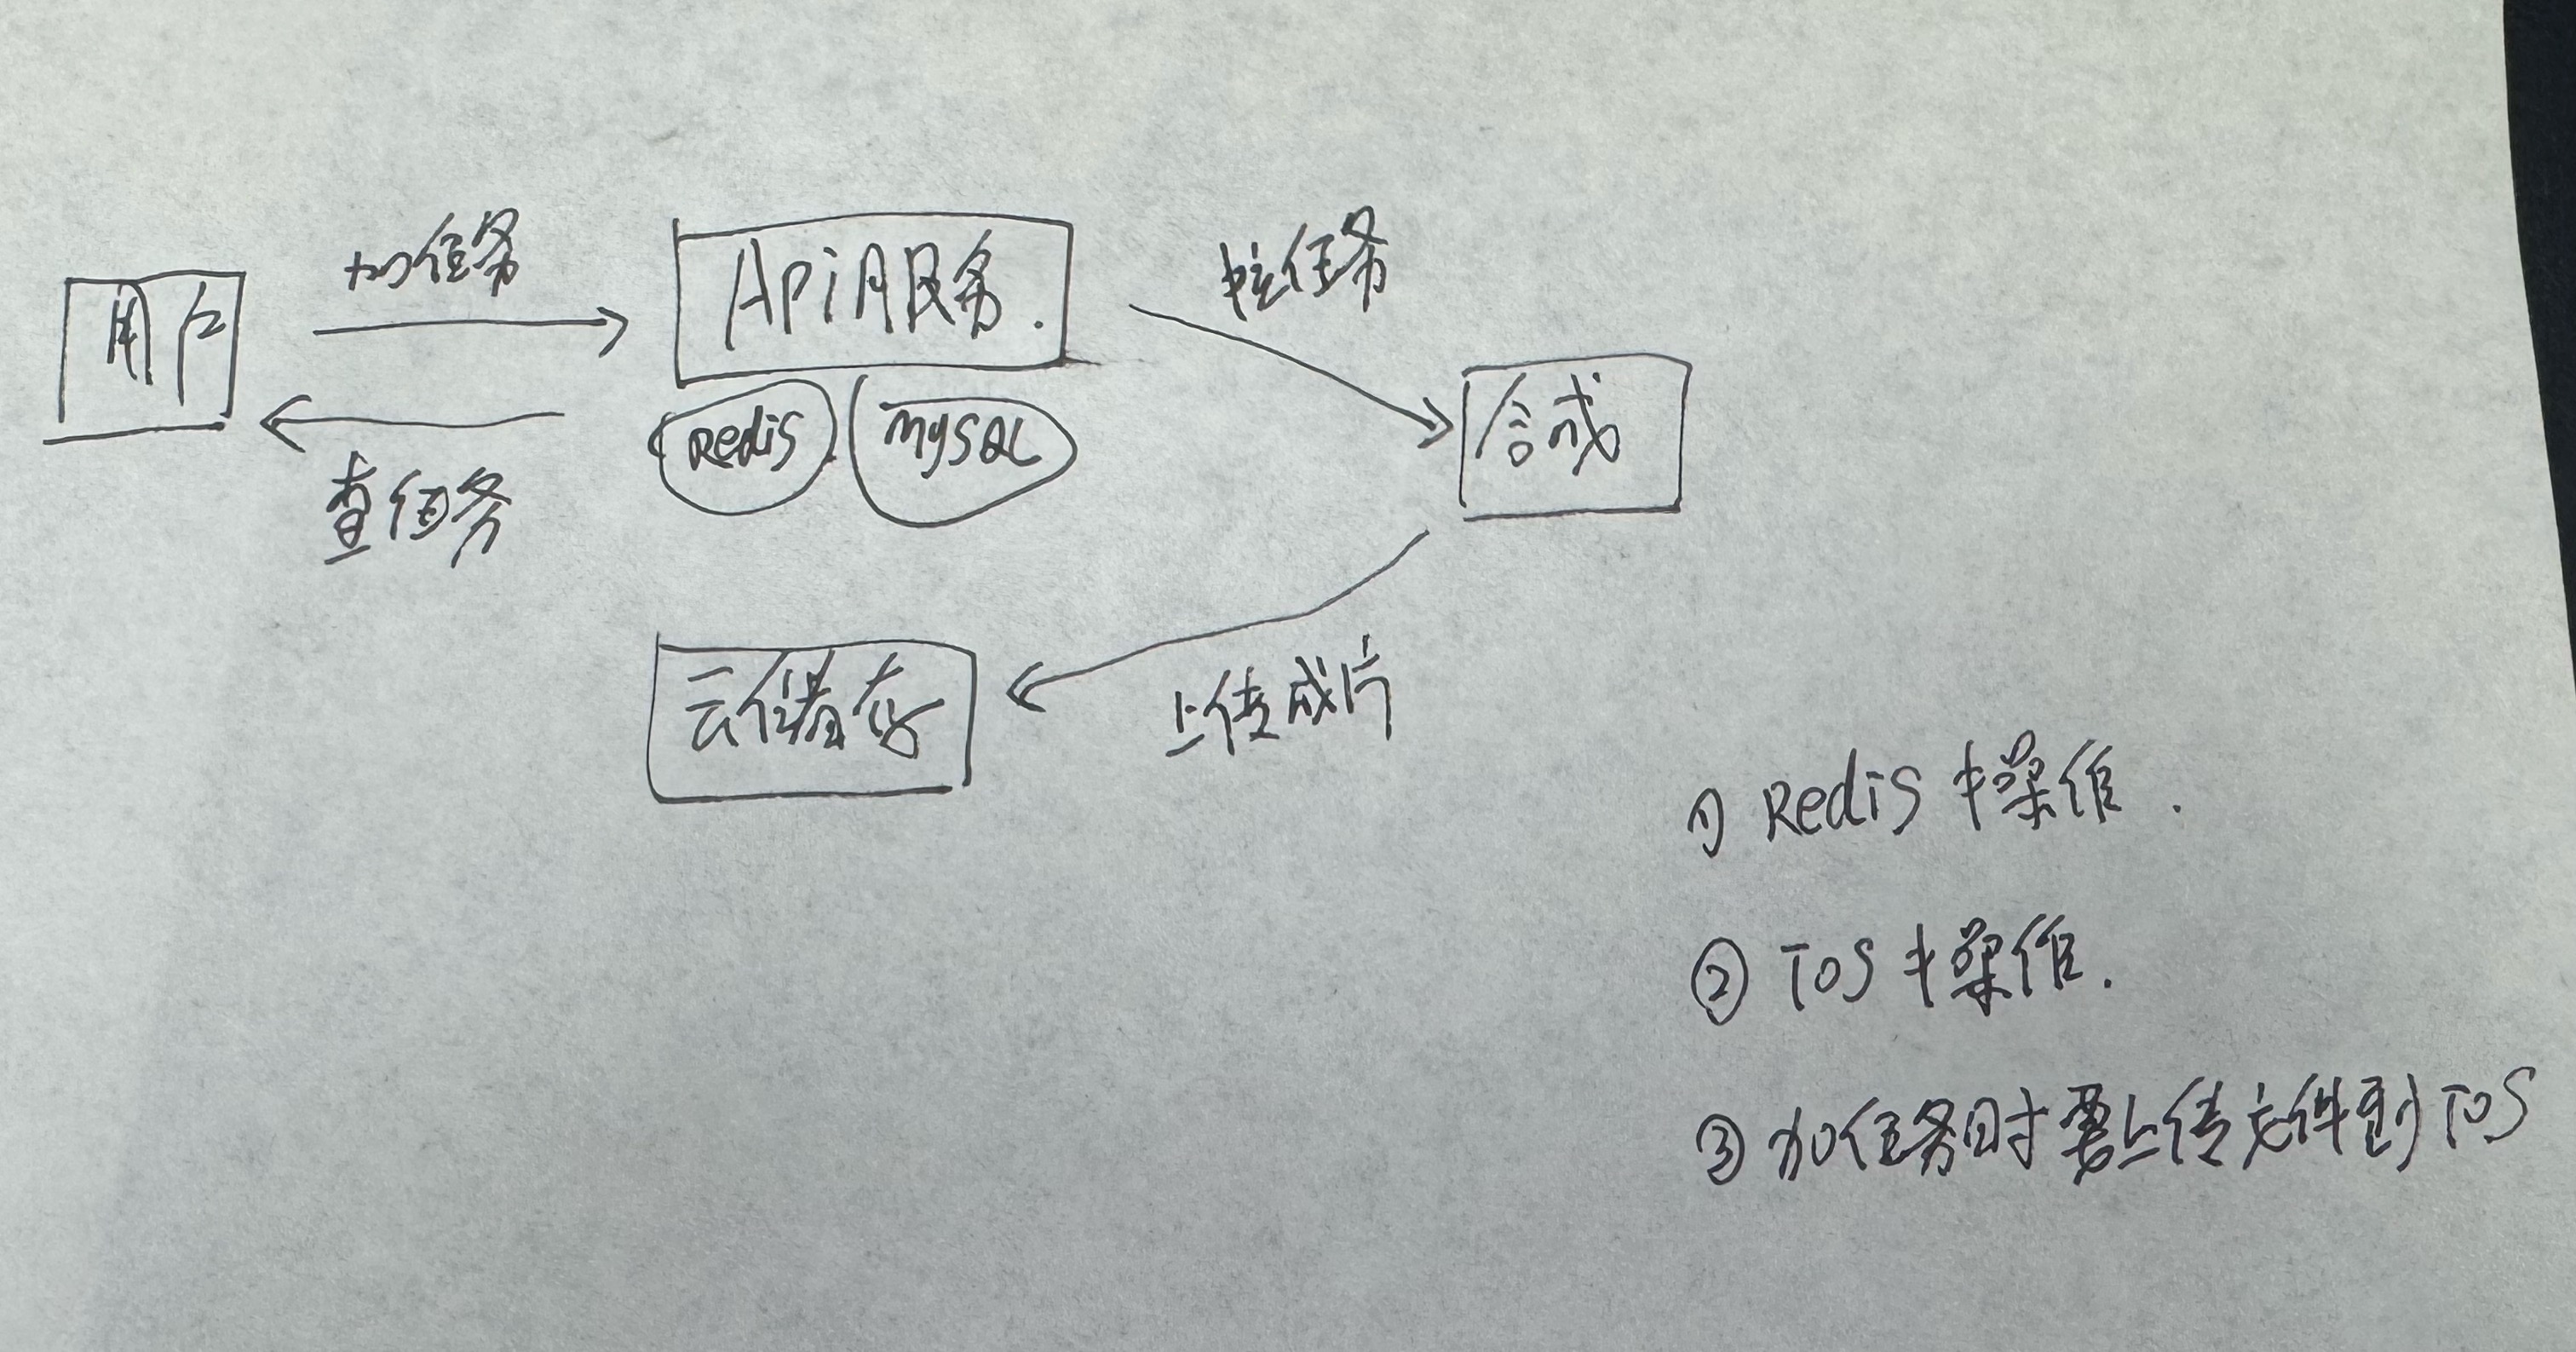 加任务
Api服务.
拉任务
用户
Redis
MySQL
合成
查任务
云储存
上传成片
① Redis 操作.
② TOS 操作.
③ 加任务时要上传文件到TOS